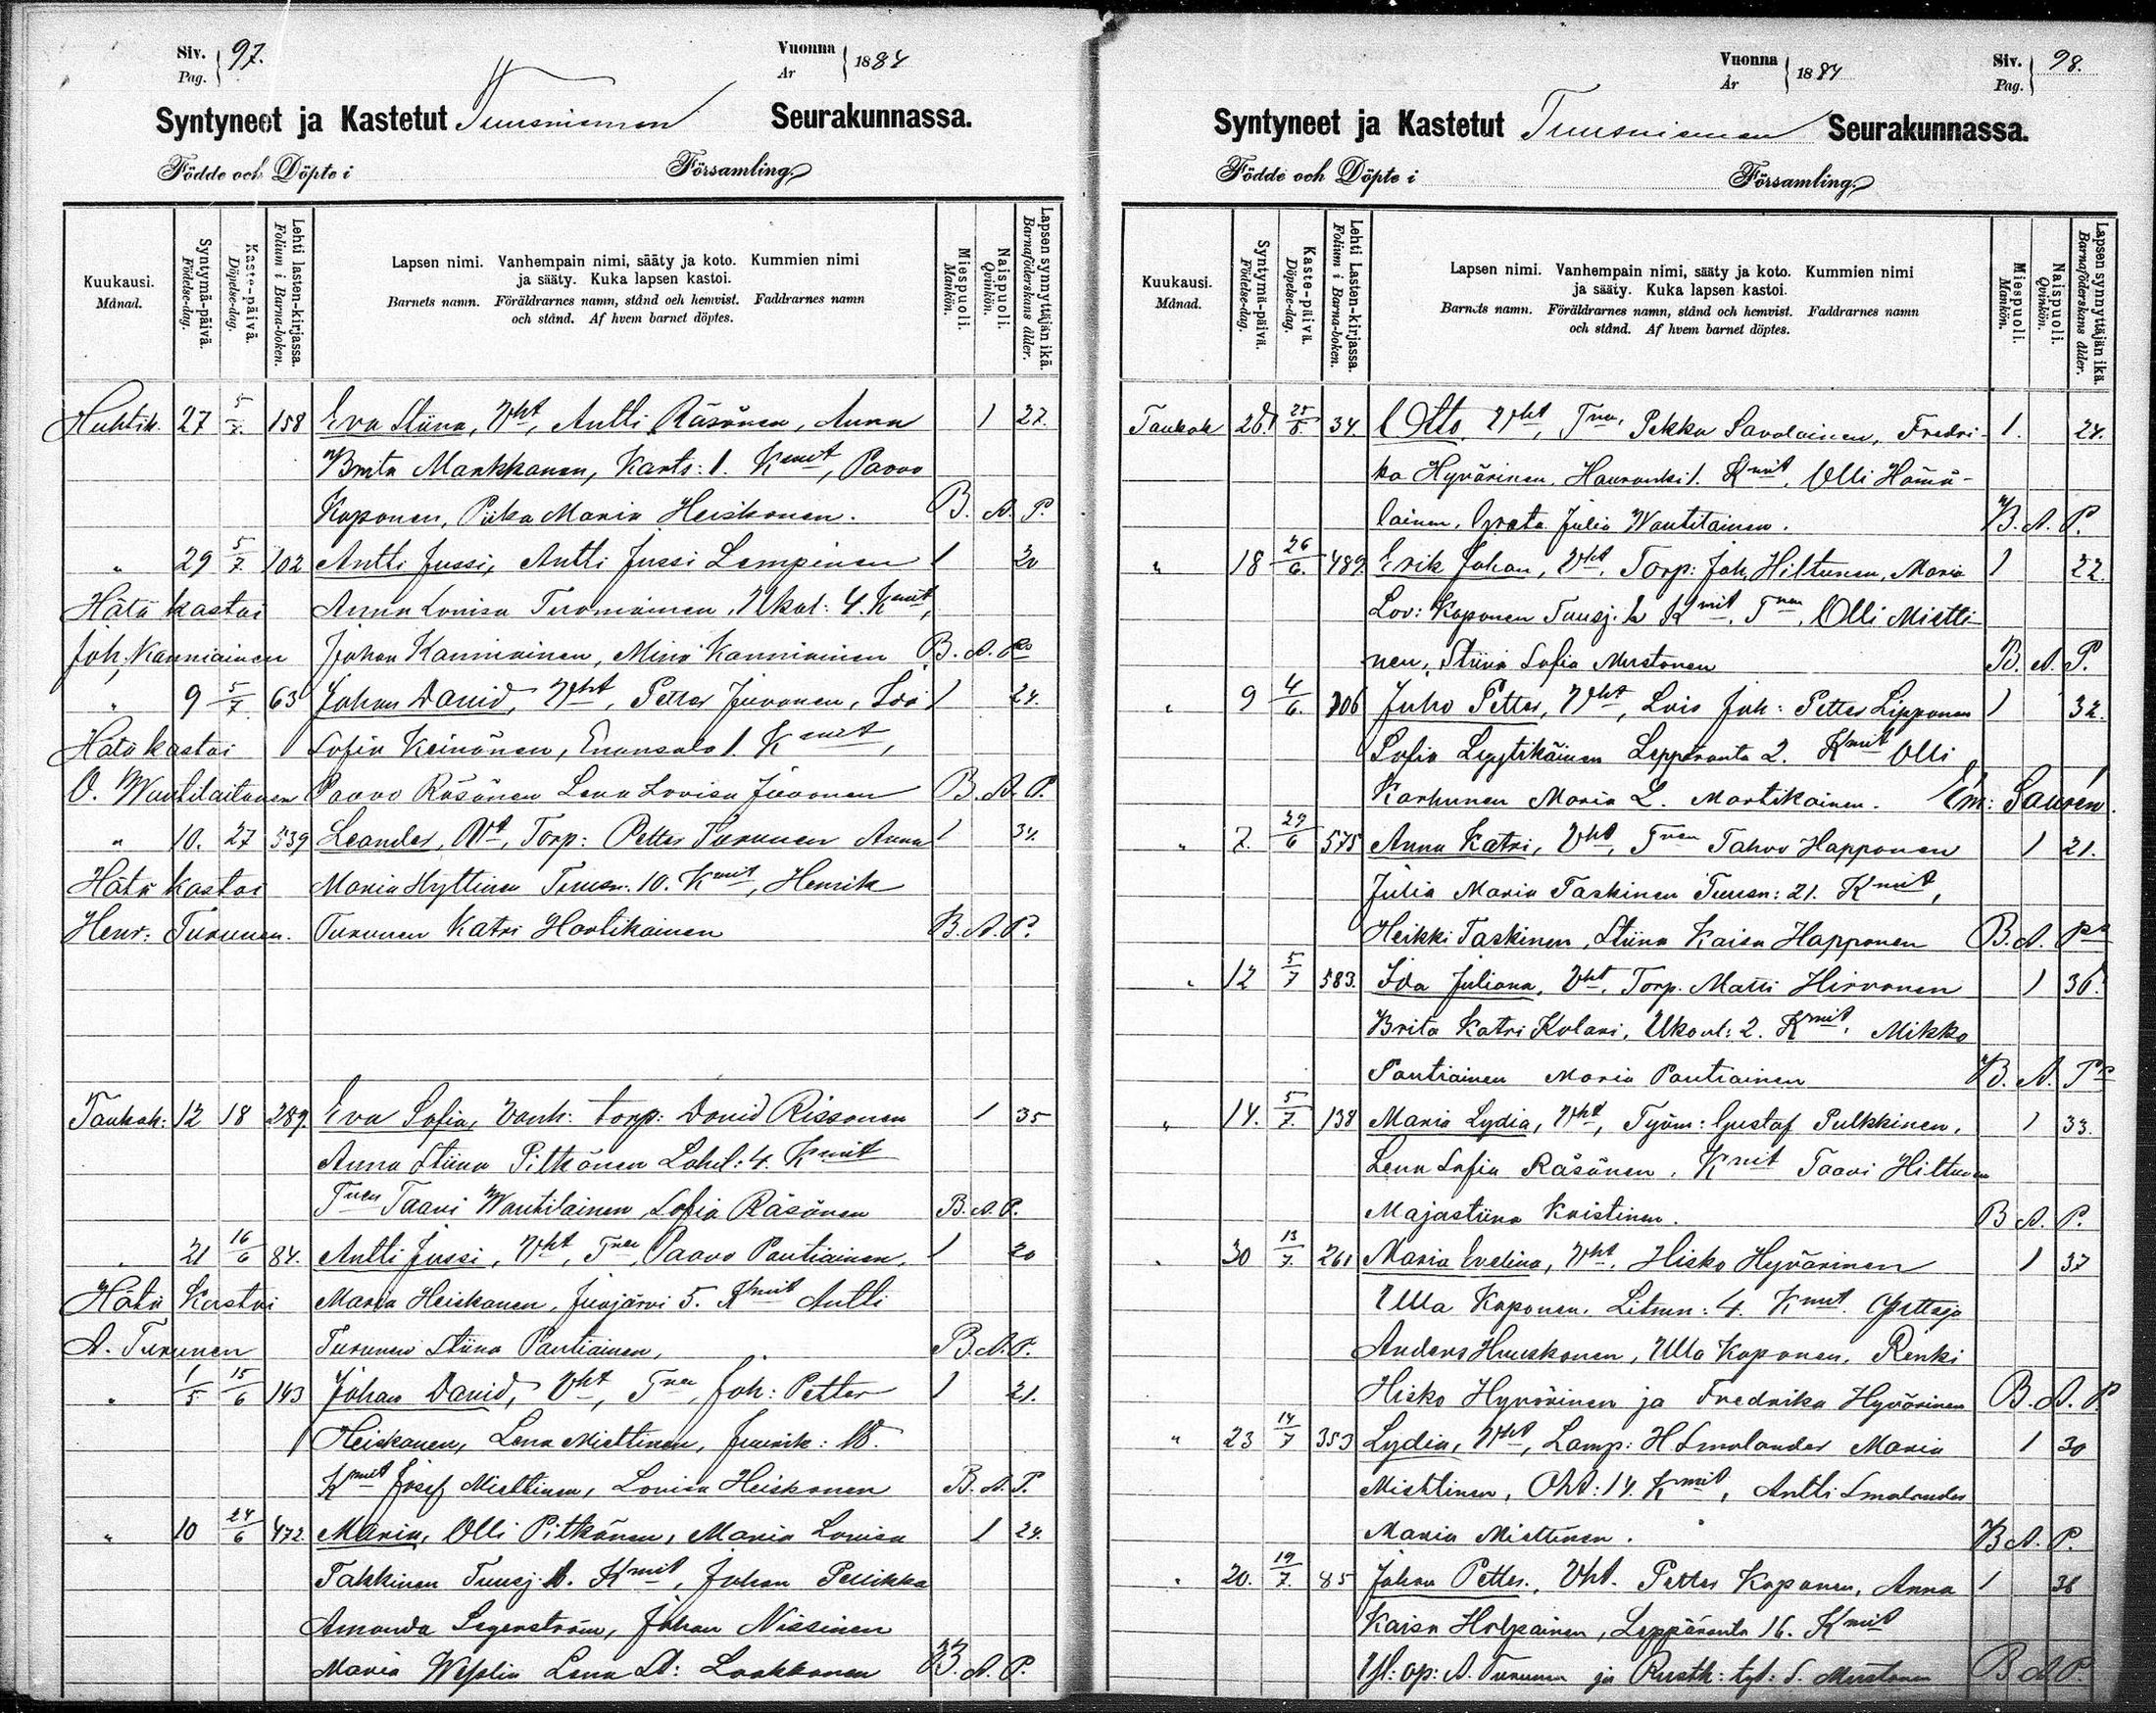 Siv. 97.
Pag.
Vuonna 1884
År
Syntyneet ja Kastetut Tuusniemen Seurakunnassa.
Födde och Döpte i Församling.
Kuukausi.
Månad.
Syntymä-päivä.
Födelse-dag.
Kaste-päivä.
Döpelse-dag.
Lehti lasten-kirjassa.
Folium i Barna-boken.
Lapsen nimi. Vanhempain nimi, sääty ja koto. Kummien nimi
ja sääty. Kuka lapsen kastoi.
Barnets namn. Föräldrarnes namn, stånd och hemvist. Faddrarnes namn
och stånd. Af hvem barnet döptes.
Miespuoli.
Mankön.
Naispuoli.
Qvinkön.
Lapsen synnyttäjän ikä.
Barnaföderskans ålder.
Huhtik. 27 5/7. 158 Eva Stiina, Vht, Antti Räsänen, Anna 1 27.
Brita Markkanen, Karts: 1. Kmit, Paavo
Koponen, Piika Maria Heiskanen. B. A. P.
" 29 5/7. 102 Antti Jussi, Antti Jussi Lempinen 1 20
Hätä kastoi Anna Lovisa Tuomainen, Ukol: 4. Kmit,
Joh. Kanniainen Johan Kanniainen, Mina Kanniainen B. A.
" 9 5/7. 63 Johan David, Vht, Petter Juvonen, Ida 1 24.
Hätä kastoi Sofia Keinänen, Enonsalo 1. Kmit,
O. Wautilainen Paavo Räsänen Lena Lovisa Juvonen B. A. P.
" 10. 27 539 Leander, Vt, Torp: Petter Turunen Anna 1 34.
Hätä kastoi Maria Hyttinen Tuusn: 10. Kmit, Henrik
Henr: Turunen. Turunen Katri Hartikainen B. A. P.
Toukok: 12 18 289. Eva Sofia, Vanh: torp: David Rissanen 1 35
Anna Stiina Pitkänen Lahd: 4. Kmit
Tnen Taavi Wautilainen, Sofia Räsänen B. A. P.
" 21 16/6 84. Antti Jussi, Vht, Tnen Paavo Pautiainen, 1 20
Hätä Kastoi Maria Heiskanen, Juojärvi 5. Kmit Antti
A. Turunen Turunen Stiina Pautiainen, B. A. P.
" 1/5 15/6 143 Johan David, Vht, Tnen, Joh: Petter 1 21.
Heiskanen, Lena Miettinen,
Kmit Josef Miettinen, Lovisa Heiskanen B. A. P.
" 10 24/6 472. Maria, Olli Pitkänen, Maria Lovisa 1 24.
Takkinen Tuusj. Kmit, Johan Pellikka
Amanda Segerström, Johan Nissinen
Maria Lena Laakkonen B. A. P.
Vuonna 1884
År
Siv. 98.
Pag.
Syntyneet ja Kastetut Tuusniemen Seurakunnassa.
Födde och Döpte i Församling.
Kuukausi.
Månad.
Syntymä-päivä.
Födelse-dag.
Kaste-päivä.
Döpelse-dag.
Lehti Lasten-kirjassa.
Folium i Barna-boken.
Lapsen nimi. Vanhempain nimi, sääty ja koto. Kummien nimi
ja sääty. Kuka lapsen kastoi.
Barnets namn. Föräldrarnes namn, stånd och hemvist. Faddrarnes namn
och stånd. Af hvem barnet döptes.
Miespuoli.
Mankön.
Naispuoli.
Qvinkön.
Lapsen synnyttäjän ikä.
Barnaföderskans ålder.
Toukok 34. Otto, Vht, Tnen, Pekka Savolainen, Fredri- 1. 24.
ka Hyvärinen, Kmit, Olli Hämä-
lainen, Greta Julia Wautilainen. B. A. P.
" 18 26/6. 489. Erik Johan, Vht, Torp: Joh. Hiltunen, Maria 1 22.
Lov: Koponen Tuusj: Kmit. Tnen, Olli Mietti-
nen, Stiina Sofia Mustonen B. A. P.
" 9 4/6. Juho Petter, Vht, Lois Joh: Petter Lipponen 1 32.
Sofia Lyytikäinen Leppäranta 2. Kmit Olli
Karhunen Maria L. Martikainen. Em: Saurén.
" 7. 29/6 575 Anna Katri, Vht, Tnen Tahvo Happonen 1 21.
Julia Maria Taskinen Tuusn: 21. Kmit,
Heikki Taskinen, Stiina Kaisa Happonen B. A.
" 12 5/7 583. Ida Juliana, Vht, Torp. Matti Hirvonen 1 36.
Brita Katri Kolari, Ukonl: 2. Kmit, Mikko
Pautiainen Maria Pautiainen B. A.
" 14. 5/7. 138 Maria Lydia, Vht, Työm: Gustaf Pulkkinen, 1 33.
Lena Sofia Räsänen. Kmit Taavi Hiltunen
Majastiina Koistinen. B. A. P.
" 30 13/7. 261 Maria Evelina, Vht, Hisko Hyvärinen 1 37
Ulla Koponen. Litmn: 4. Kmit.
Anders Huuskonen, Ulla Koponen, Renki
Hisko Hyvärinen ja Fredrika Hyvärinen B. A. P
" 23 14/7 353 Lydia, Vht, Lamp: H Smolander Maria 1 30
Miettinen, Oht: 14. Kmit, Antti Smolander
Maria Miettinen. B A. P.
" 20. 19/7. 85 Johan Petter, Vht. Petter Koponen, Anna 1 36
Kaisa Holpainen, Leppäranta 16. Kmit
Yl: op: A. Turunen ja Rusth: tyt: S. Mustonen B A P.